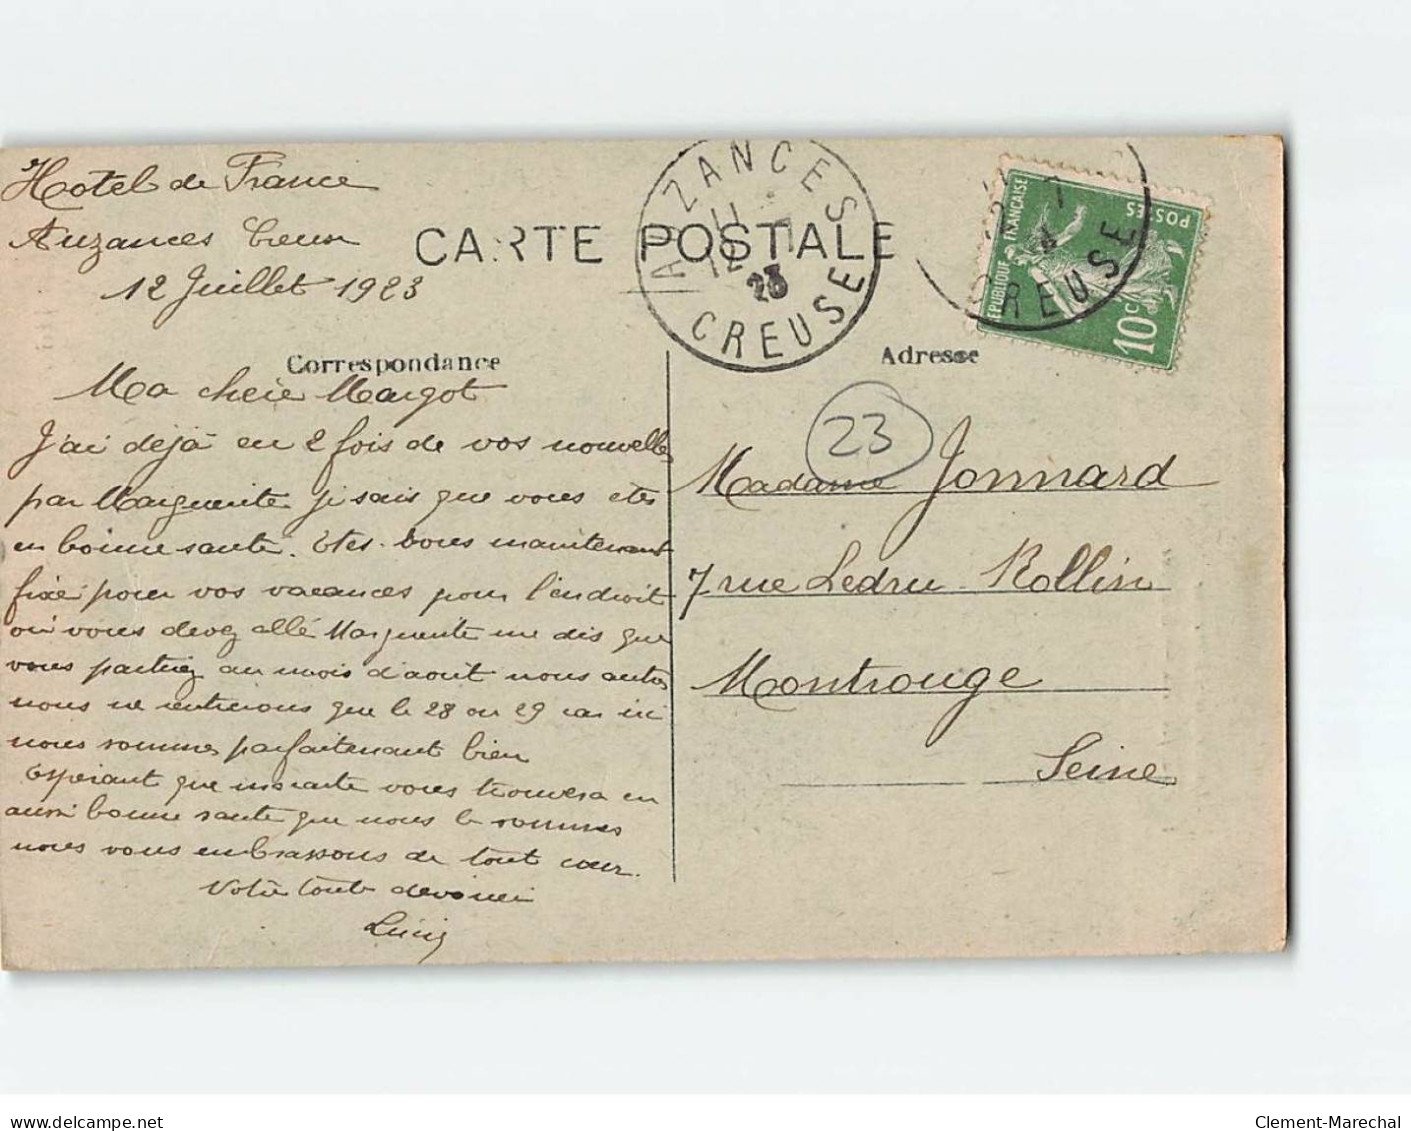 Hotel de France
Auzances Creuse
12 Juillet 1923
CARTE POSTALE
AUZANCES
12 - 7
23
CREUSE
RÉPUBLIQUE FRANÇAISE
POSTES
10c
CREUSE
Correspondance
Adresse
23
Ma chère Margot
J'ai déjà eu 2 fois de vos nouvelles
par Marguerite je sais que vous etes
en bonne santé. Etes-vous maintenant
fixé pour vos vacances pour l'endroit
où vous devez allé Marguerite me dis que
vous partiez au mois d'aout nous autres
nous ne rentrerons que le 28 ou 29 car ici
nous sommes parfaitement bien
Espérant que ma carte vous trouvera en
aussi bonne santé que nous le sommes
nous vous embrassons de tout cœur.
Votre tout dévoué
Madame Jonnard
7 rue Ledru-Rollin
Montrouge
Seine
delcampe.net
Clement-Marechal